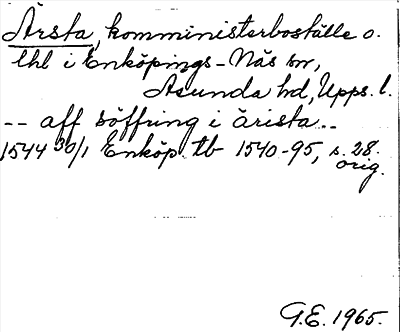 Årsta, komministerboställe o.
lhl i Enköpings-Näs sn,
Asunda hd, Upps. l.
-- aff söffring i ärista --
1544 30/1 Enköp. tb 1540-95, s. 28.
orig.
G.E. 1965.